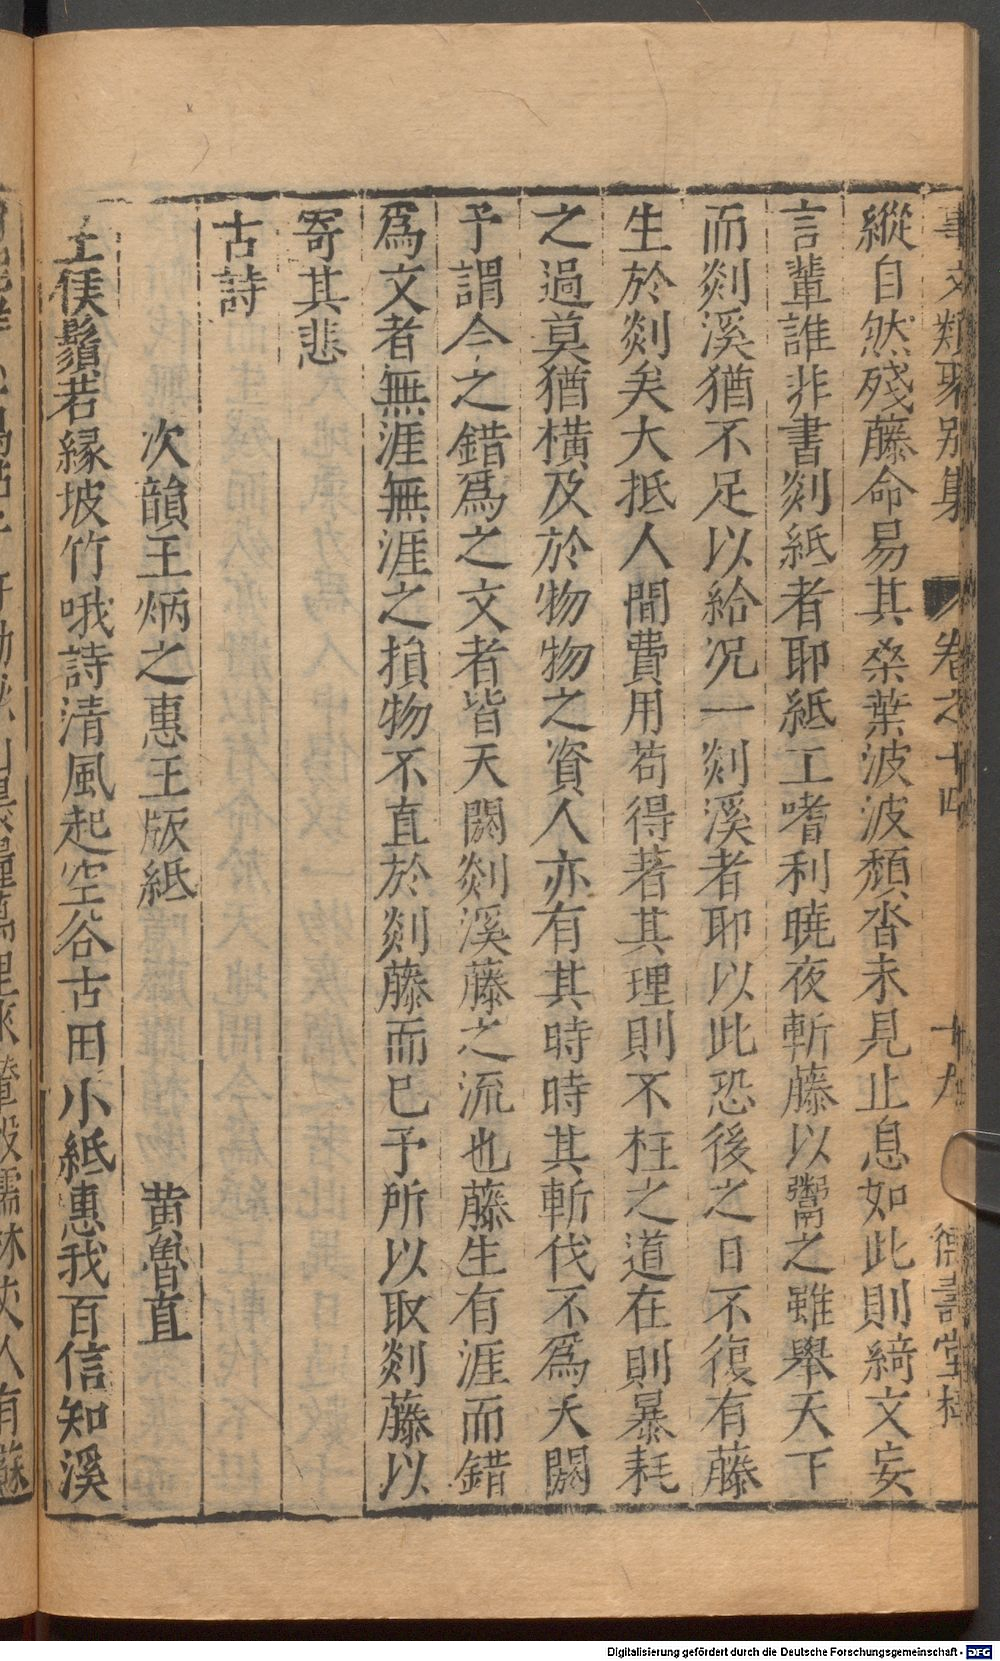 事文類聚别集 卷之十四 十九 德壽堂梓
縱自然殘藤命易其桑葉波波頹沓未見止息如此則綺文妄
言輩誰非書剡紙者耶紙工嗜利曉夜斬藤以鬻之雖舉天下
而剡溪猶不足以給況一剡溪者耶以此恐後之日不復有藤
生於剡矣大抵人間費用苟得著其理則不枉之道在則暴耗
之過莫猶橫及於物物之資人亦有其時時其斬伐不爲夭閼
予謂今之錯爲之文者皆夭閼剡溪藤之流也藤生有涯而錯
爲文者無涯無涯之損物不直於剡藤而已予所以取剡藤以
寄其悲
古詩
次韻王炳之惠王版紙 黄魯直
王侯鬚若緣坡竹哦詩清風起空谷古田小紙惠我百信知溪
Digitalisierung gefördert durch die Deutsche Forschungsgemeinschaft - DFG